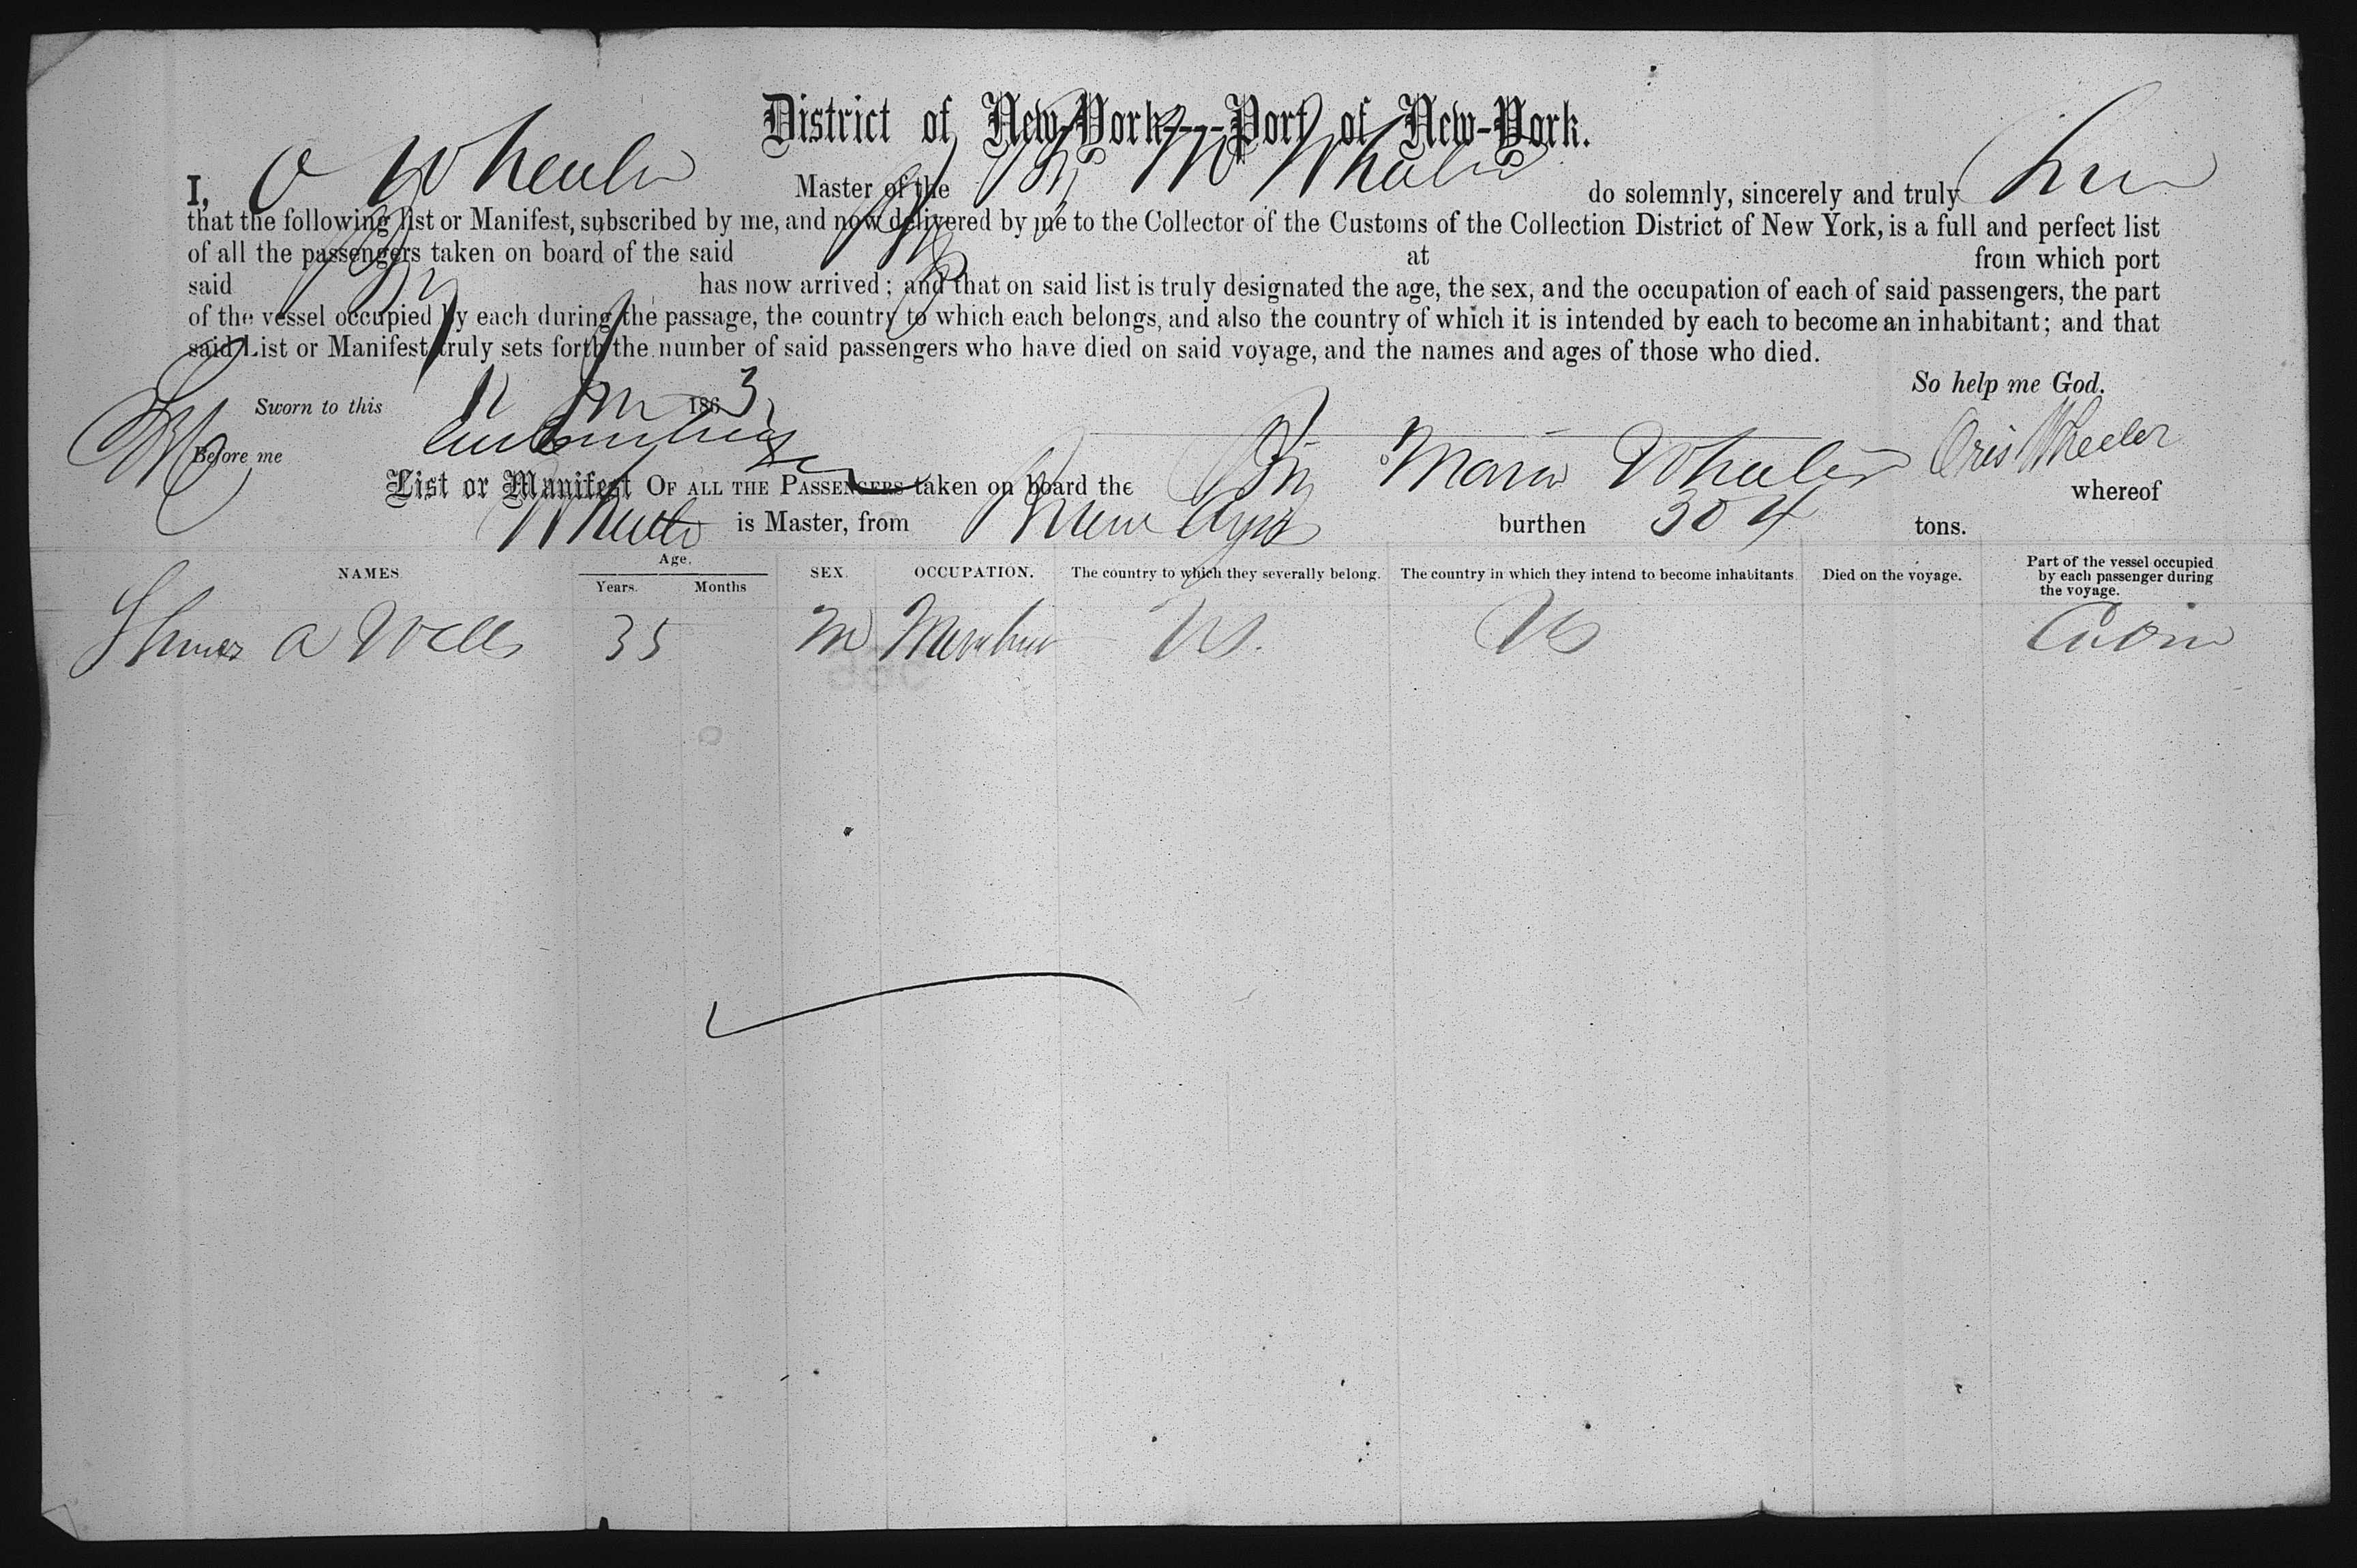 District of New-York---Port of New-York.
I, O Wheeler Master of the Br M Wheeler do solemnly, sincerely and truly
that the following list or Manifest, subscribed by me, and now delivered by me to the Collector of the Customs of the Collection District of New York, is a full and perfect list
of all the passengers taken on board of the said at from which port
said has now arrived; and that on said list is truly designated the age, the sex, and the occupation of each of said passengers, the part
of the vessel occupied by each during the passage, the country to which each belongs, and also the country of which it is intended by each to become an inhabitant; and that
said List or Manifest truly sets forth the number of said passengers who have died on said voyage, and the names and ages of those who died.
So help me God.
Sworn to this 11 1863
Before me Oris Wheeler
List or Manifest OF ALL THE PASSENGERS taken on board the Maria Wheeler whereof
Wheeler is Master, from burthen 304 tons.
NAMES. Age. Years. Months SEX. OCCUPATION. The country to which they severally belong. The country in which they intend to become inhabitants. Died on the voyage. Part of the vessel occupied by each passenger during the voyage.
A Wells 35 M US. US Cabin